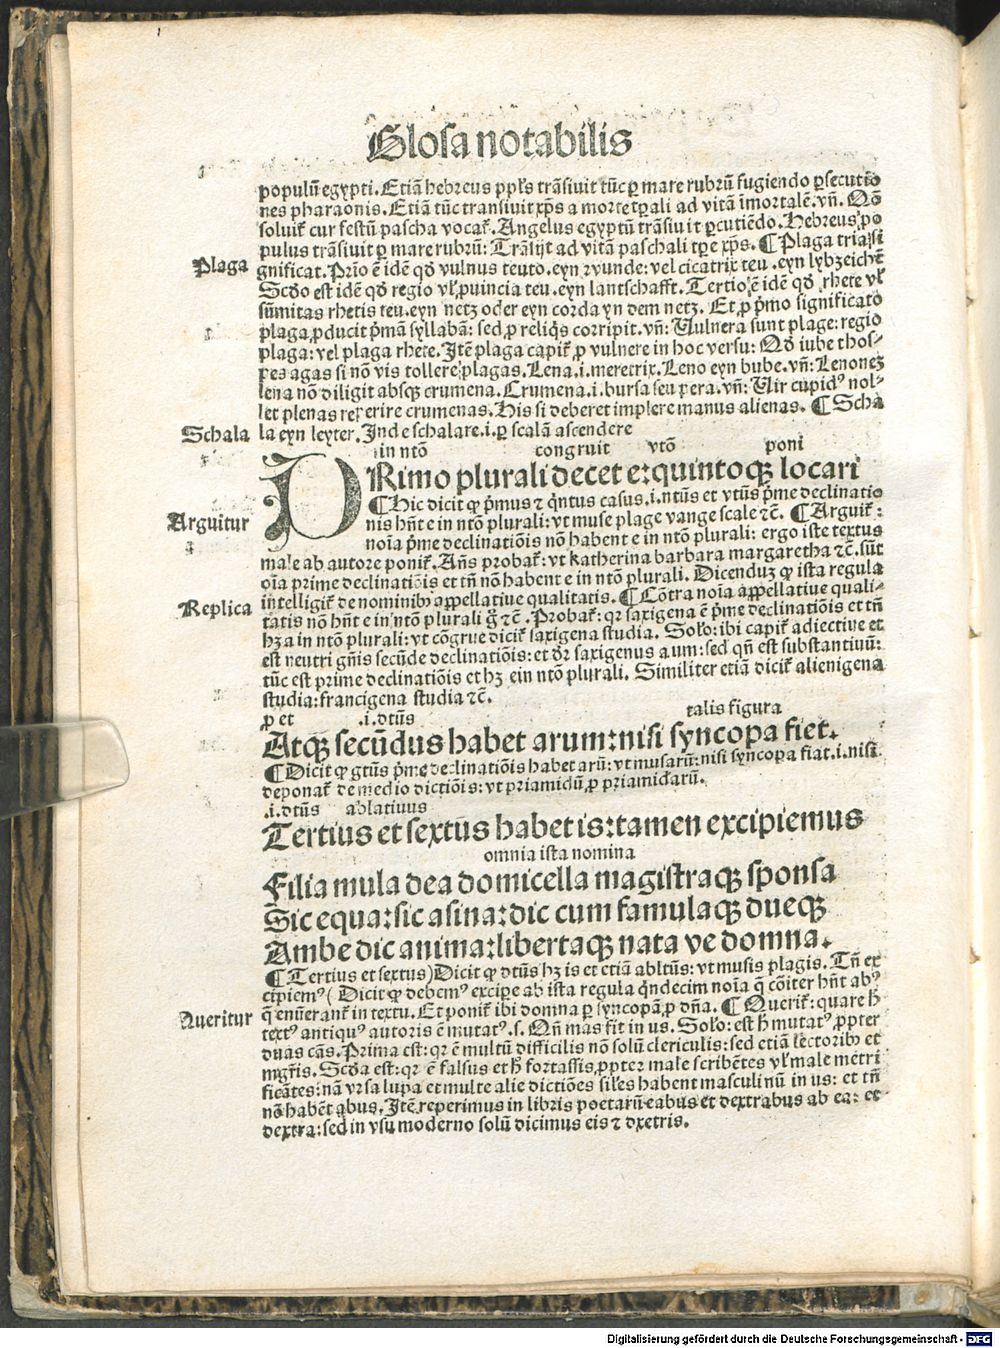 Glosa notabilis
populū egypti. Etiā hebreus ppl's trāsiuit tūc ꝑ mare rubrū fugiendo ꝑsecutio
nes pharaonis. Etiā tūc transiuit xp̄s a morte tꝑali ad vitā īmortalē. vn̄. Qd̄
soluit cur festū pascha vocat. Angelus egyptū trāsiuit ꝑcutiēdo. Hebreus, po
pulus trāsiuit ꝑ mare rubrū: Trāsijt ad vitā paschali tꝑe xp̄s. ¶ Plaga tria si
Plaga
gnificat. Prīo ē idē qd̄ vulnus teuto. eyn wunde: vel cicatrix teu. eyn lybzeichē
Scd̄o est idē qd̄ regio vl' ꝓuincia teu. eyn lantschafft. Tertio ē idē qd̄ rhete vl'
sūmitas rhetis teu. eyn netz oder eyn corda yn dem netz. Et ꝓ p̄mo significato
plaga ꝓducit p̄mā syllabā: sed ꝓ reliq̄s corripit. vn̄: Uulnera sunt plage: regio
plaga: vel plaga rhete. Jtē plaga capit' ꝓ vulnere in hoc versu: Qd̄ iube thos⸗
pes agas si nō vis tollere plagas. Lena .i. meretrix. Leno eyn bube. vn̄: Lenonez
lena nō diligit absqꝫ crumena. Crumena .i. bursa seu pera. vn̄: Uir cupid' nol⸗
let plenas reperire crumenas. His si deberet implere manus alienas. ¶ Scha
Schala
la eyn leyter. Jnde schalare .i. ꝑ scalā ascendere
in ntō congruit vtō poni
PRimo plurali decet e: quintoqꝫ locari
¶ Hic dicit ꝙ p̄mus ⁊ q̄ntus casus .i. ntūs et vtūs p̄me declinatio
Arguitur
nis hn̄t e in ntō plurali: vt muse plage vange scale ⁊c̄. ¶ Arguit':
noīa p̄me declinatiōis nō habent e in ntō plurali: ergo iste textus
male ab autore ponit'. An̄s probat': vt katherina barbara margaretha ⁊c̄. sūt
oīa prime declinatiōis et tn̄ nō habent e in ntō plurali. Dicenduz ꝙ ista regula
Replica
intelligit' de nominibꝫ appellatiue qualitatis. ¶ Cōtra noīa appellatiue quali⸗
tatis nō hn̄t e in ntō plurali g̊ ⁊c̄. Probat': qꝛ saxigena ē p̄me declinatiōis et tn̄
hꝫ a in ntō plurali: vt cōgrue dicit' saxigena studia. Sol'o: ibi capit' adiectiue et
est neutri gn̄is secūde declinatiōis: et dr̄ saxigenus a um: sed qn̄ est substantiuū:
tūc est prime declinatiōis et hꝫ e in ntō plurali. Similiter etiā dicit' alienigena
studia: francigena studia ⁊c̄.
ꝓ et .i. dtūs talis figura
Atqꝫ secūdus habet arum: nisi syncopa fiet.
¶ Dicit ꝙ gtūs p̄me declinatiōis habet arū: vt musarū: nisi syncopa fiat .i. nisi
deponat' de medio dictiōis: vt priamidū ꝓ priamidarū.
.i. dtūs ablatiuus
Tertius et sextus habet is: tamen excipiemus
omnia ista nomina
Filia mula dea domicella magistraqꝫ sponsa
Sic equa: sic asina: dic cum famulaqꝫ dueqꝫ
Ambe dic anima: libertaqꝫ nata ve domna.
¶ Tertius et sextus) Dicit ꝙ dtūs hꝫ is et etiā abltūs: vt musis plagis. Tn̄ ex
cipiem' ( Dicit ꝙ debem' excipe ab ista regula q̄ndecim noīa q̄ cōiter hn̄t ab'
Queritur
q̄ enūerant' in textu. Et ponit' ibi domna ꝑ syncopā ꝓ dn̄a. ¶ Querit': quare h̄
text' antiqu' autoris ē mutat' .s. Qn̄ mas fit in us. Sol'o: est h̄ mutat' ꝓpter
duas cās. Prima est: qꝛ ē multū difficilis nō solū clericulis: sed etiā lectoribꝫ et
mgr̄is. Scd̄a est: qꝛ ē falsus et h̄ fortassis ꝓpter male scribētes vl' male metri
ficātes: nā vrsa lupa et multe alie dictiōes sil'es habent masculinū in us: et tn̄
nō habēt abus. Jtē reperimus in libris poetarū eabus et dextrabus ab ea: et
dextra: sed in vsu moderno solū dicimus eis ⁊ dxetris.
Digitalisierung gefördert durch die Deutsche Forschungsgemeinschaft - DFG